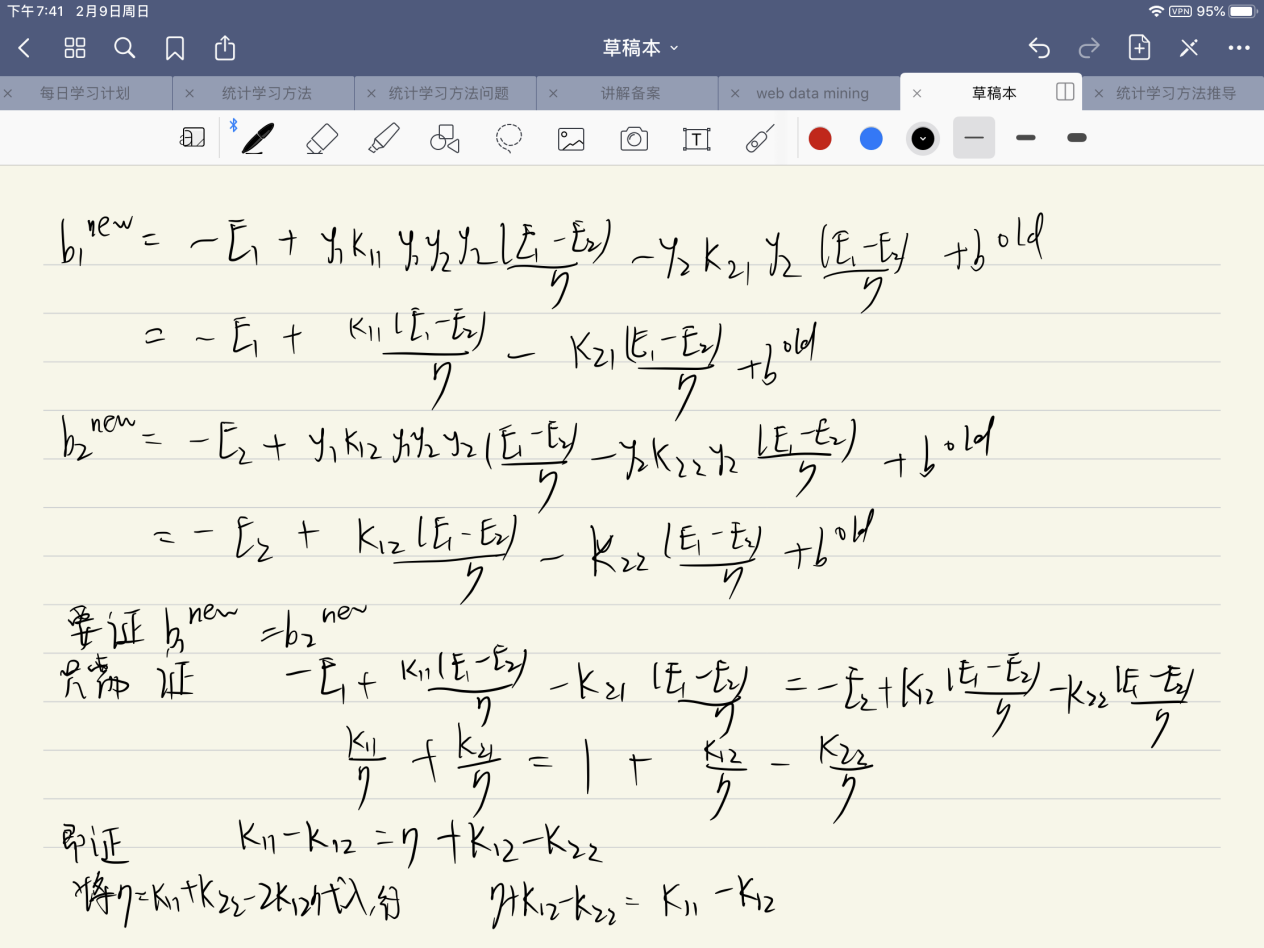 下午7:41 2月9日周日 VPN 95%
草稿本
每日学习计划 统计学习方法 统计学习方法问题 讲解备案 web data mining 草稿本 统计学习方法推导
b₁ⁿᵉʷ = -E₁ + y₁K₁₁ y₁y₂y₂(E₁-E₂)/η - y₂K₂₁y₂ (E₁-E₂)/η + bᵒˡᵈ
= -E₁ + K₁₁(E₁-E₂)/η - K₂₁(E₁-E₂)/η + bᵒˡᵈ
b₂ⁿᵉʷ = -E₂ + y₁K₁₂ y₁y₂y₂(E₁-E₂)/η - y₂K₂₂y₂ (E₁-E₂)/η + bᵒˡᵈ
= -E₂ + K₁₂(E₁-E₂)/η - K₂₂(E₁-E₂)/η + bᵒˡᵈ
要证 b₁ⁿᵉʷ = b₂ⁿᵉʷ
只需证 -E₁ + K₁₁(E₁-E₂)/η - K₂₁(E₁-E₂)/η = -E₂ + K₁₂(E₁-E₂)/η - K₂₂(E₁-E₂)/η
K₁₁/η + K₂₁/η = 1 + K₁₂/η - K₂₂/η
即证 K₁₁-K₁₂ = η + K₁₂-K₂₂
将η=K₁₁+K₂₂-2K₁₂代入,得 η+K₁₂-K₂₂ = K₁₁-K₁₂